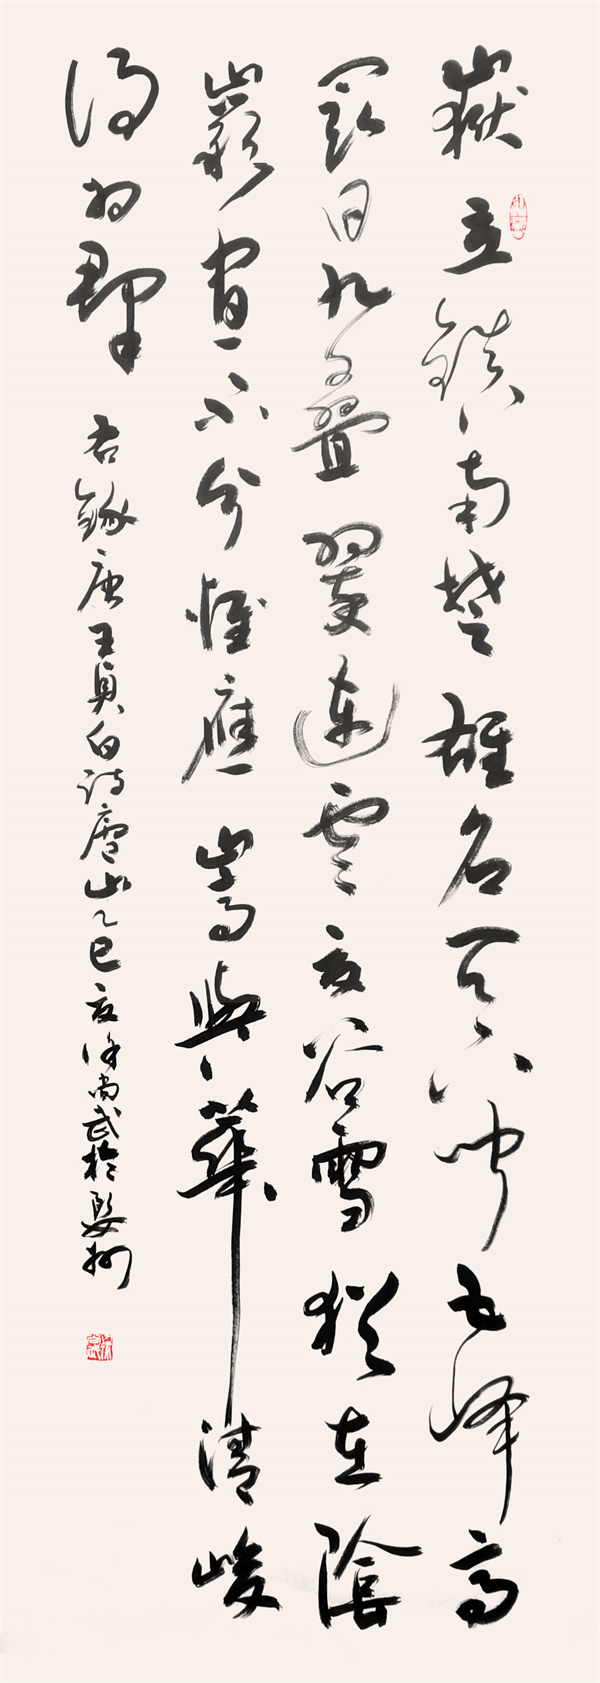 嶽立鎮南楚雄名天下聞五峰高
閡日九疊翠連雲夏谷雪猶在陰
巖晝不分惟應嵩與華清峻
得為群
右錄唐王貞白詩廬山乙巳夏徐尚武於婺州